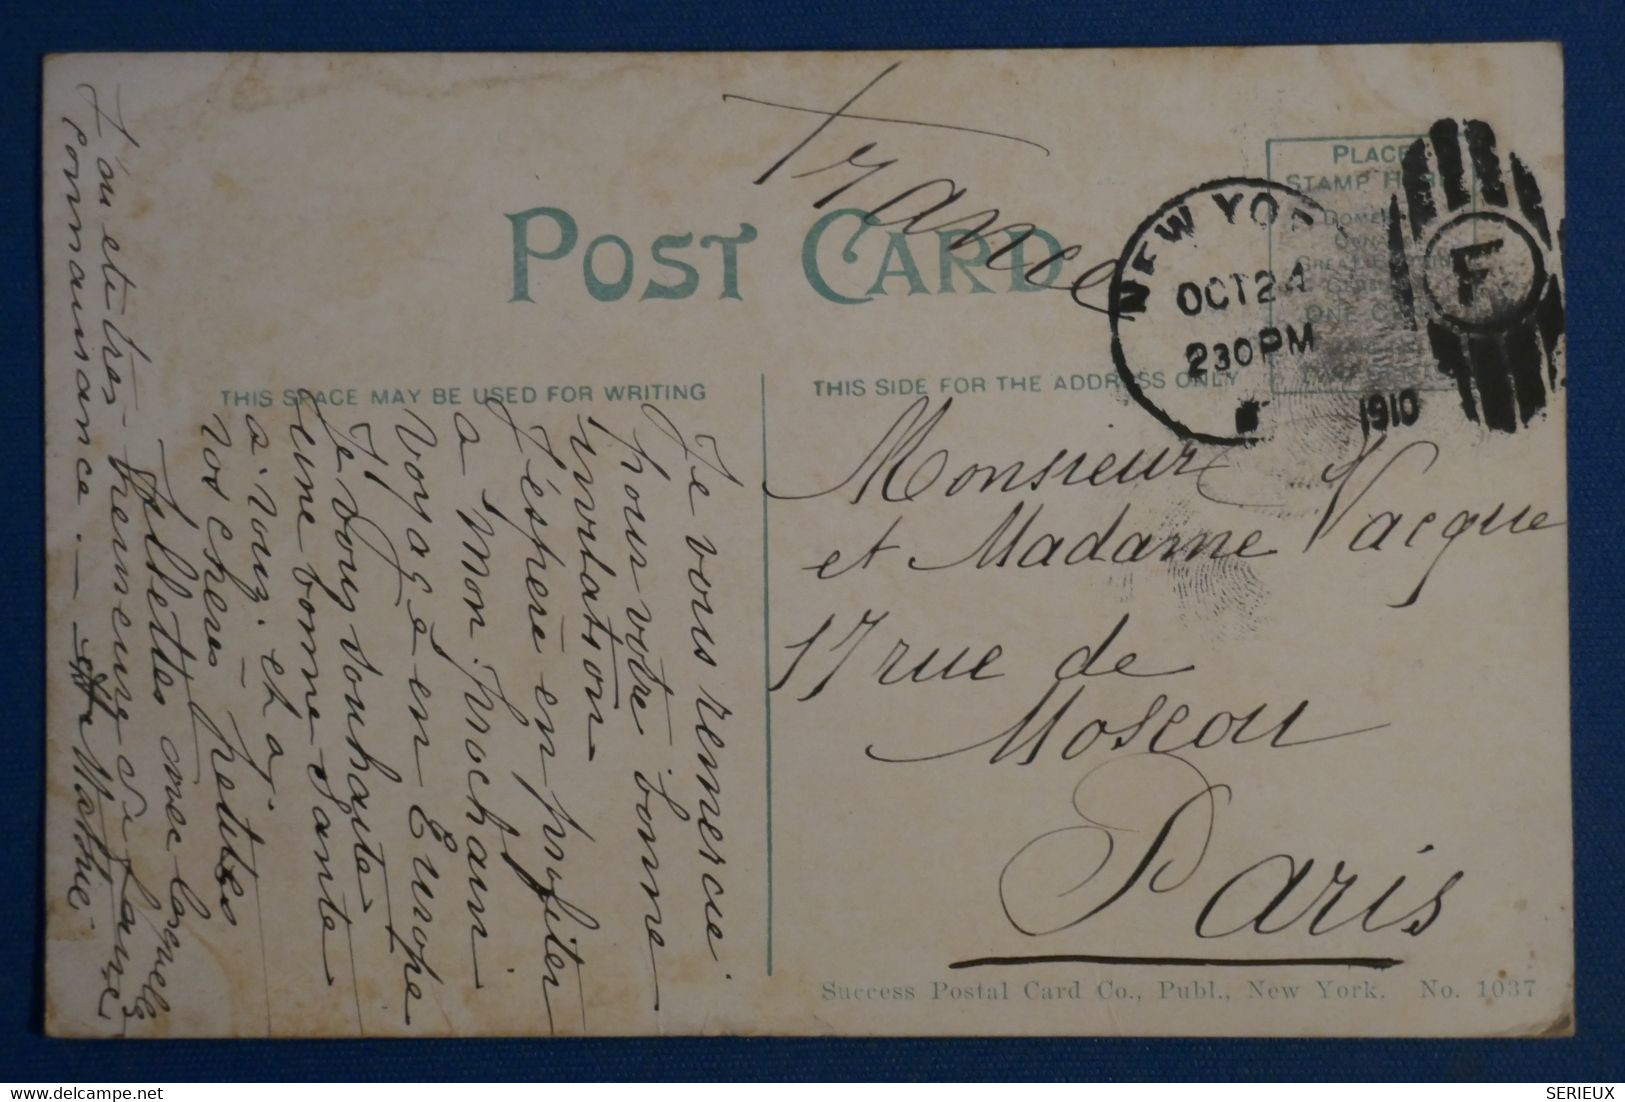 France
POST CARD
PLACE
STAMP HERE
ONE CENT
NEW YOR
OCT 24
230PM
1910
F
THIS SPACE MAY BE USED FOR WRITING
THIS SIDE FOR THE ADDRESS ONLY
Monsieur
et Madame Vacque
17 rue de
Moscou
Paris
Je vous remercie
pour votre bonne
invitation
J'éspère en profiter
a mon prochain
Voyage en Europe
Je vous souhaite
une bonne santé
a vous et a
vos chères petites
Fillettes avec lesquels
J'ai ete tres heureux de faire
connaissance. —
Success Postal Card Co., Publ., New York. No. 1037
SERIEUX